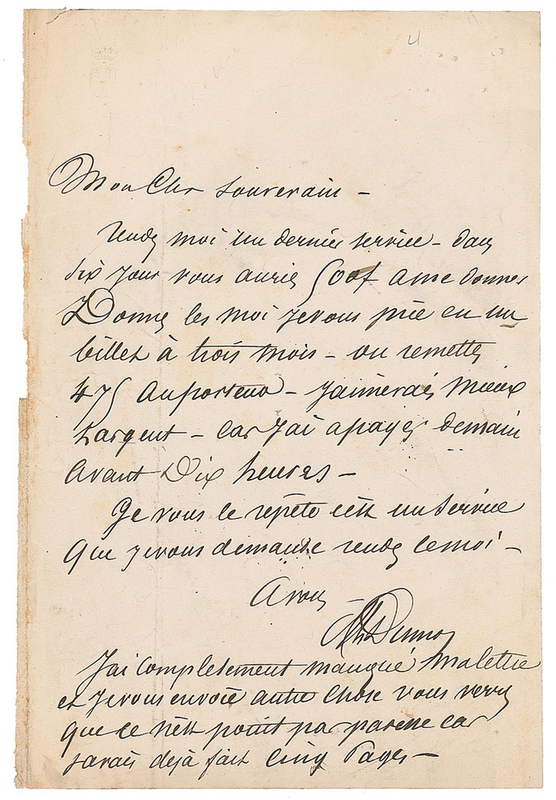 4
Mon Cher Souverain –
rendez moi un dernier service – dans
dix jours vous auriez 500f a me donner
Donnez les moi je vous prie en un
billet à trois mois – ou remettez
475 au porteur – J'aimerais mieux
l'argent – car j'ai a payer demain
avant Dix heures –
Je vous le repète c'est un service
que je vous demande rendez le moi –
A vous –
Al Dumas
J'ai completement manqué ma lettre
et je vous envoie autre chose vous verrez
que ce n'est point par paresse car
j'avais dejà fait cinq pages –